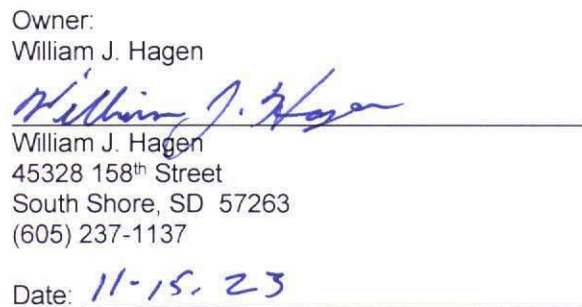 Owner:
William J. Hagen
William J. Hagen
William J. Hagen
45328 158th Street
South Shore, SD 57263
(605) 237-1137
Date: 11-15. 23